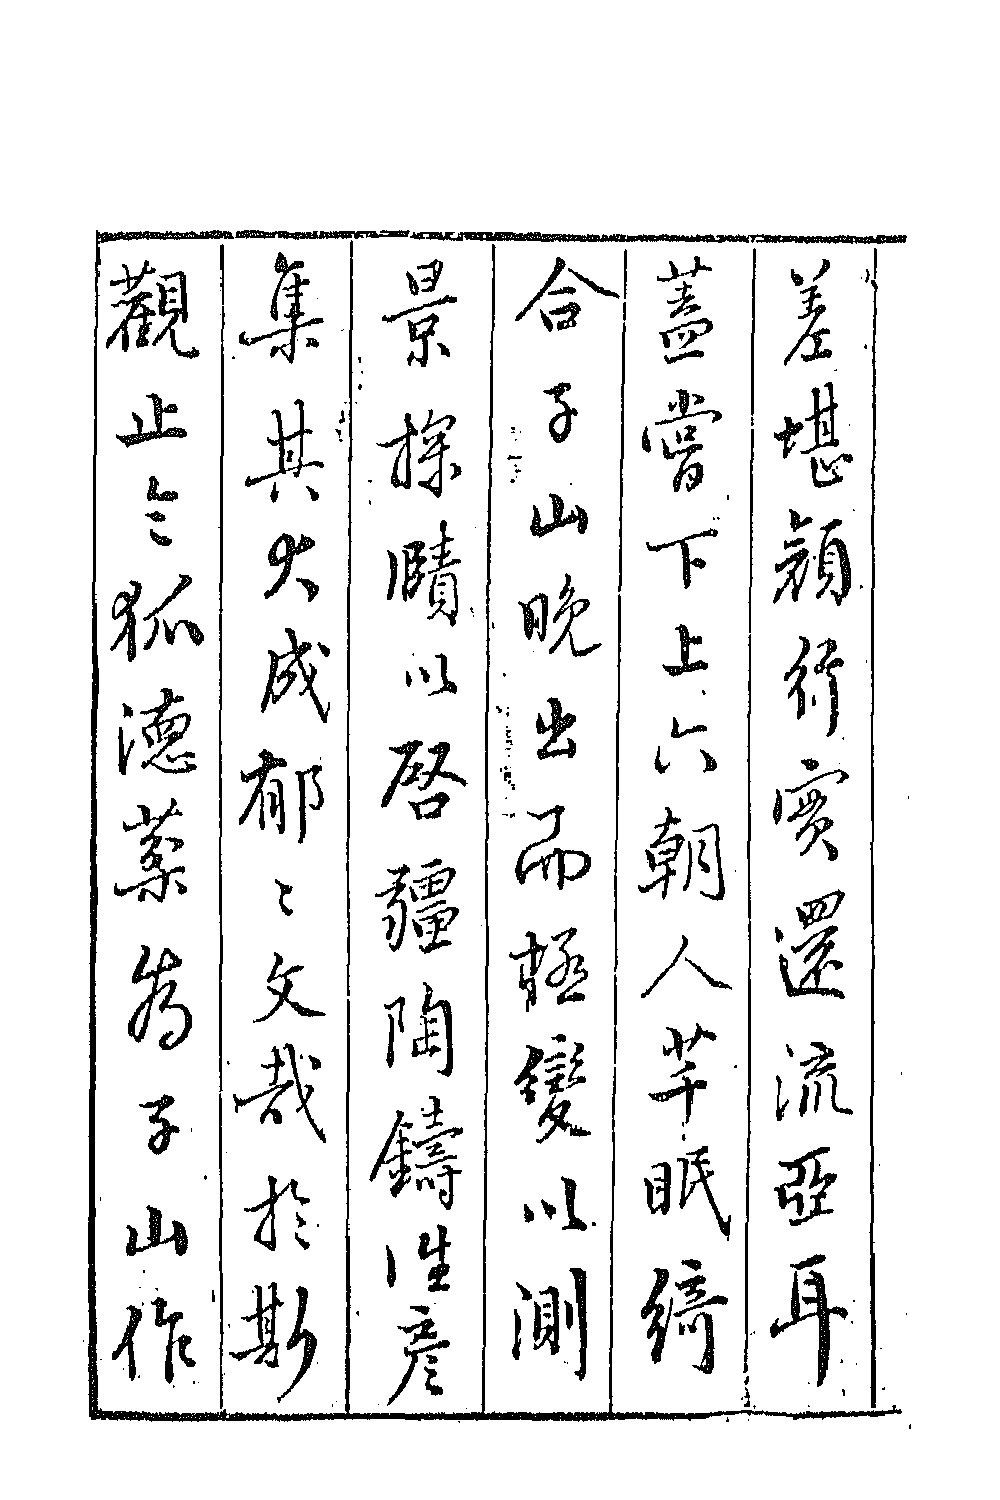 差堪顔行實還流亞耳
蓋嘗下上六朝人芊眠綺
合子山晚出而極變以測
景探賾以啓疆陶鑄徃彥
集其大成郁〻文哉於斯
觀止令狐德棻為子山作